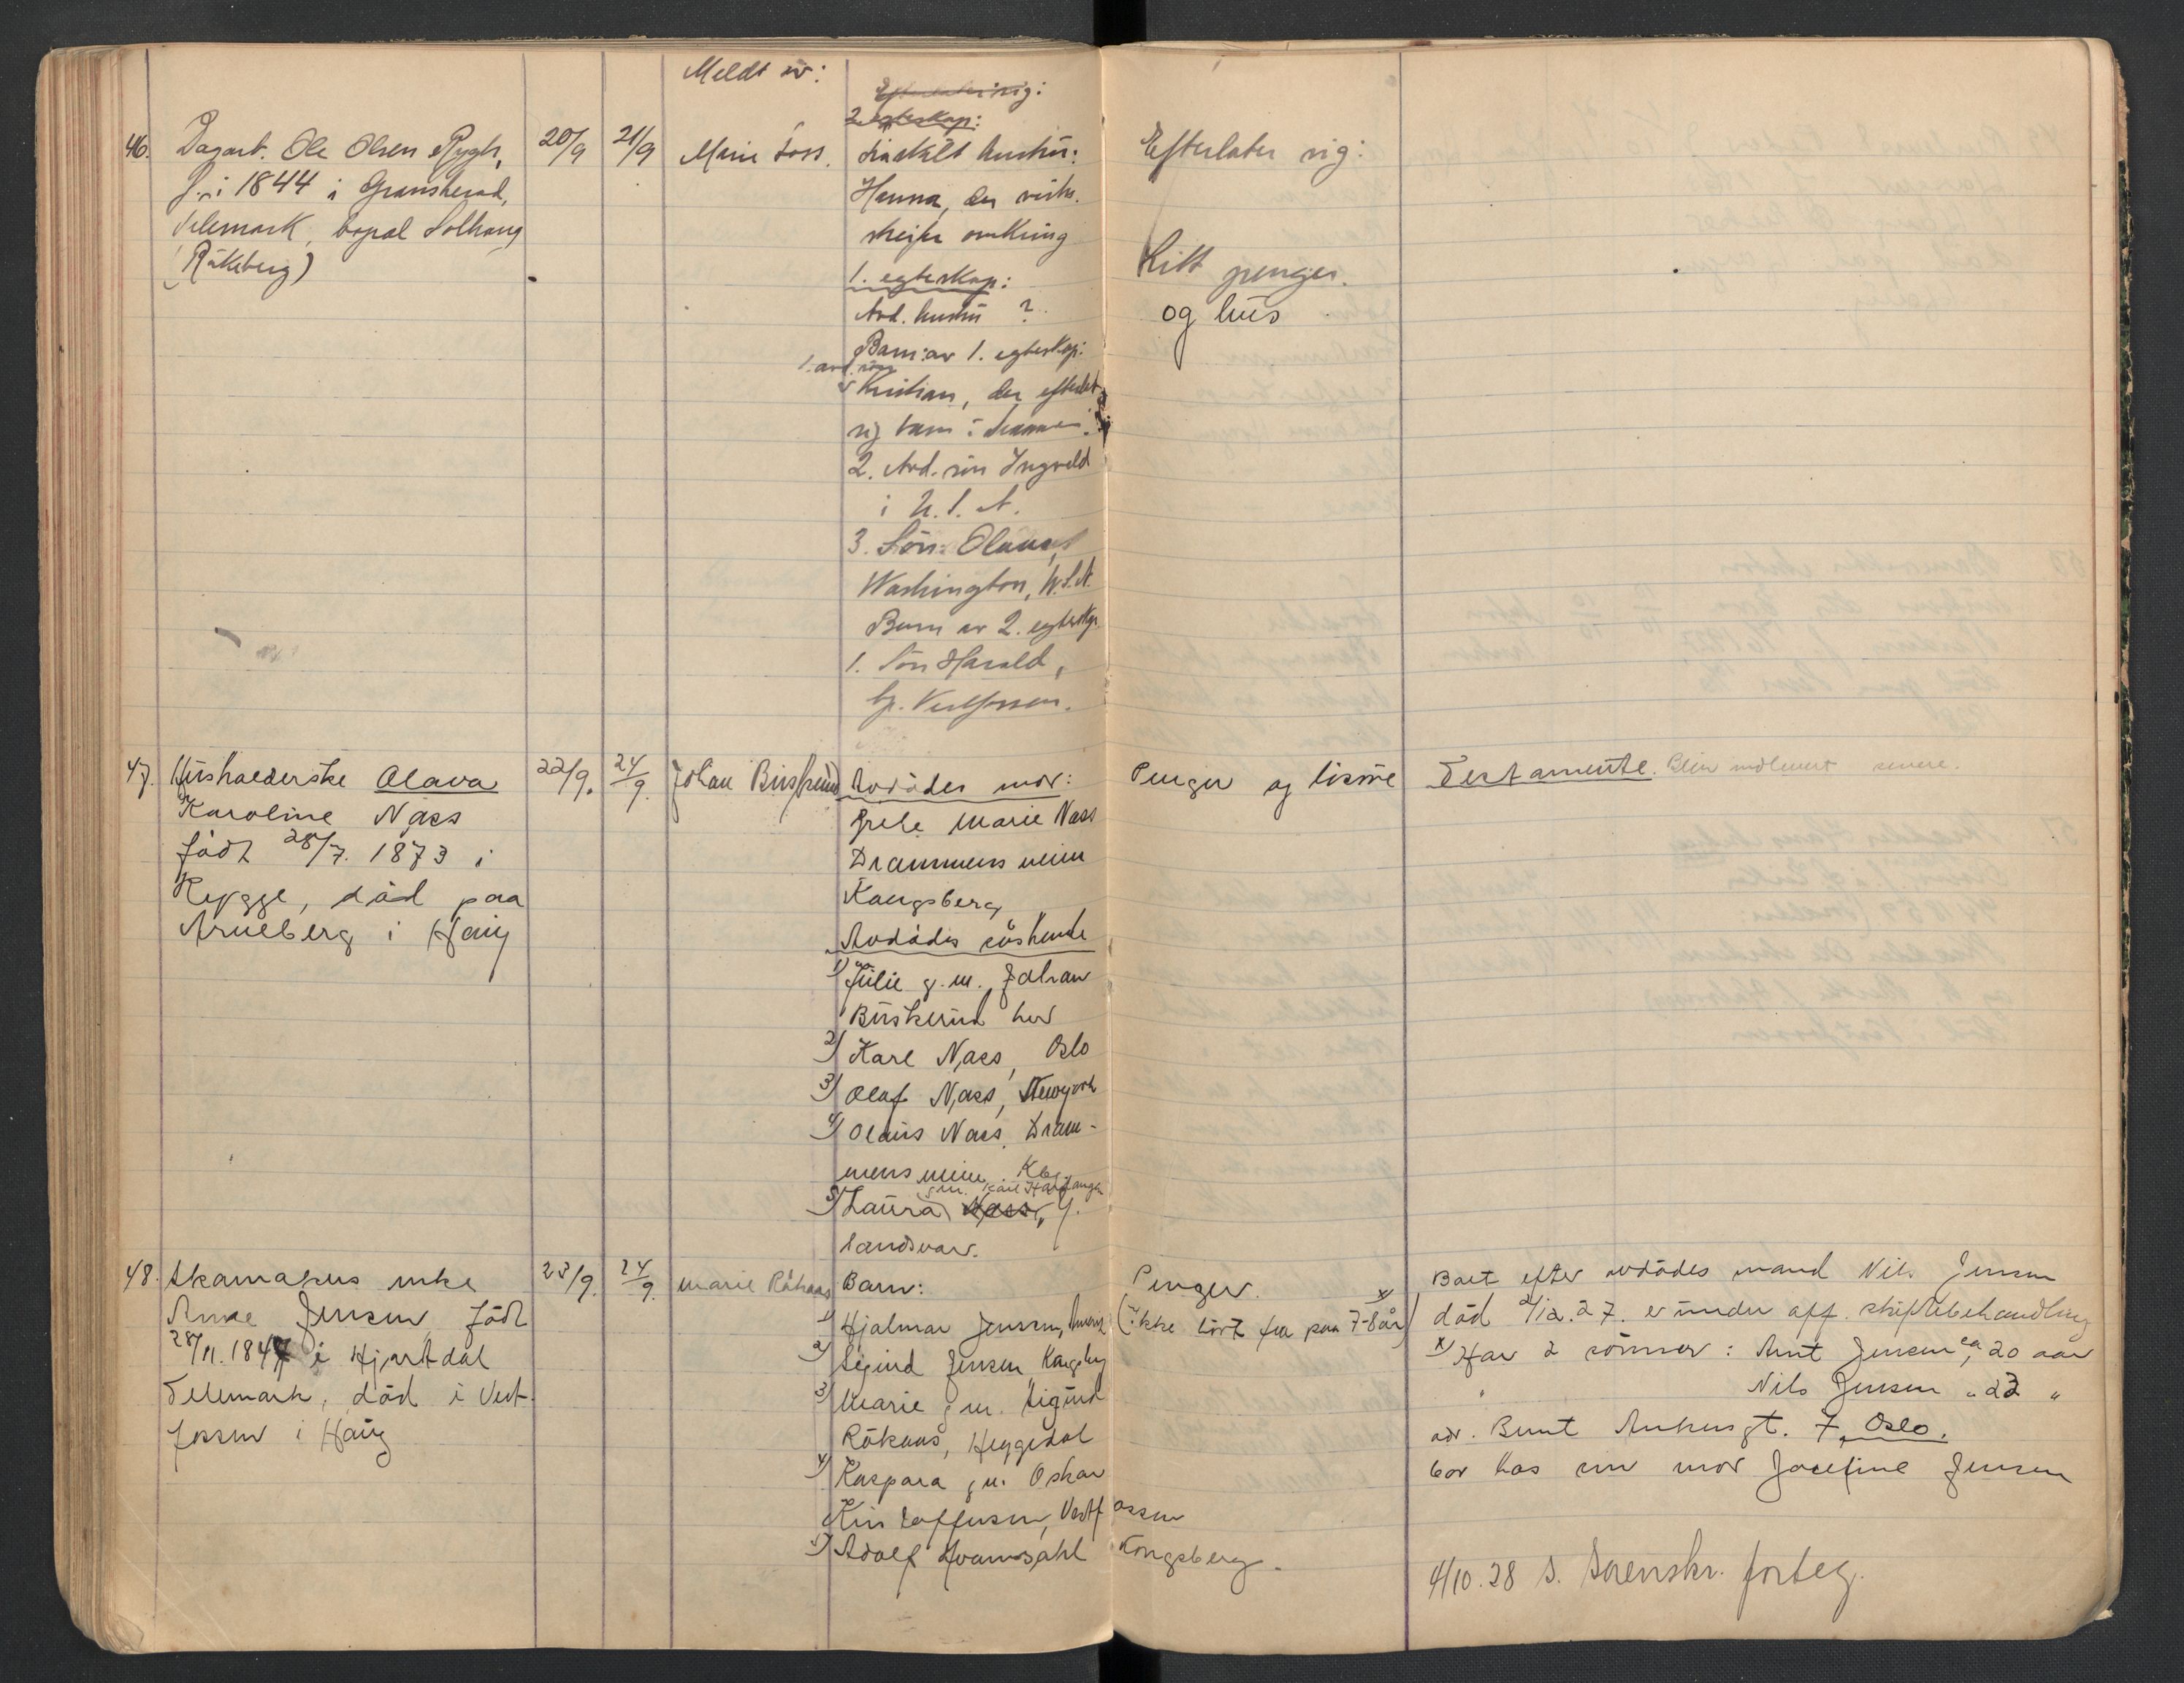 Meldt av:
Efterlater sig:
2. egteskap:
46. Dagarb. Ole Olsen Rygh,
f. i 1844 i Gransherad,
Telemark, bopal Solhaug
(Råkeberg)
20/9
21/9
Marie Foss.
Fraskilt hustru:
Hanna, der
omkring
1. egteskap:
Avd. hustru ?
Barn: av 1. egteskap:
1. avd. søn
Kristian, der efterlot
sig barn i Drammen.
2. Avd. søn Ingvald
i U.S.A.
3. Søn: Olaus,
Washington, U.S.A.
Barn av 2. egteskp.
1. Søn Harald,
bp. Vestfossen.
Efterlater sig:
Litt penger.
og hus
47. Husholderske Olava
Karoline Næss
född 28/7. 1873 i
Rygge, död paa
Arneberg i Haug
22/9.
24/9.
Johan Buskerud
Avdödes mor:
Grete Marie Næss
Drammensveien
Kongsberg
Avdödes söskende
1) Julie g. m. Johan
Buskerud her
2) Karl Næss, Oslo
3) Olaf Næss, Newyork
4) Olaus Næss, Dram-
mensveien Kbg.
g.m. Kåre Haugangen
5) Laura Næss, Y.
Sandsvær.
Penger og lösöre
Testamente. Blir indlevert senere.
48. Skomakerenke
Anne Jensen, född
28/11. 1847 i Hjartdal
Telemark, död i Vest-
fossen i Haug
23/9.
24/9.
Marie Råkaas
Barn:
1) Hjalmar Jensen, Amerik
2) Sigurd Jensen Kongsberg
3) Marie g m. Sigurd
Råkaas, Heggedal
4) Kaspara g m. Oskar
Kristoffersen, Vestfossen
5) Adolf Hvamsdahl Kongsberg.
Penger.
(ikke hört fra paa 7-8 år) x)
Boet efter avdödes mand Nils Jensen
död 2/12.27. er under off. skiftebehandling
x) Har 2 sönner: Arnt Jensen, ca 20 aar
" Nils Jensen " 22 "
adr. Bernt Ankersgt. 7, Oslo.
bor hos sin mor Josefine Jensen
4/10.28 S. Sorenskr. forteg.